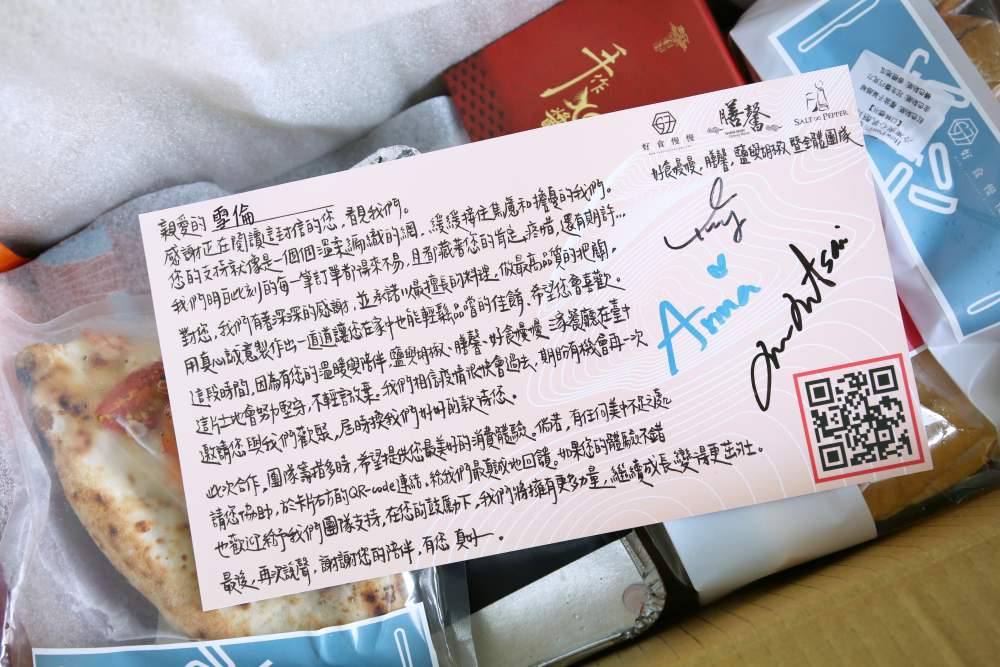 手作
好食慢慢
膳馨
SALT & PEPPER
好食慢慢、膳馨、鹽與胡椒 暨全體團隊
親愛的 雯倫
感謝正在閱讀這封信的您,看見我們。
您的支持就像是一個個溫柔編織的網,緩緩接住焦慮和擔憂的我們。
我們明白此刻的每一筆訂單都得來不易,且都藏著您的肯定、疼惜,還有期許...
對您,我們有著深深的感謝,並承諾以最擅長的料理,做最高品質的把關,
用真心誠意製作出一道道讓您在家中也能輕鬆品嚐的佳餚,希望您會喜歡。
這段時間,因為有您的溫暖與陪伴,鹽與胡椒、膳馨、好食慢慢 三家餐廳在臺中
這片土地會努力堅守,不輕言放棄。我們相信疫情很快會過去,期盼有機會再一次
邀請您與我們歡聚,屆時換我們好好的款待您。
此次合作,團隊籌措多時,希望提供您最美好的消費體驗。倘若,有任何美中不足處
請您協助,於卡片右方的QR-code連結,給我們最真誠地回饋。如果您的體驗不錯
也歡迎給予我們團隊支持,在您的鼓勵下,我們將擁有更多力量,繼續成長變得更茁壯。
最後,再次說聲,謝謝您的陪伴,有您 真好。
Anna
好食慢慢